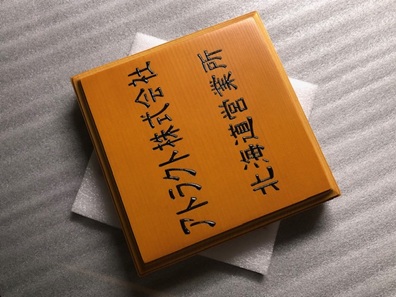 アトラクト株式会社
北海道営業所